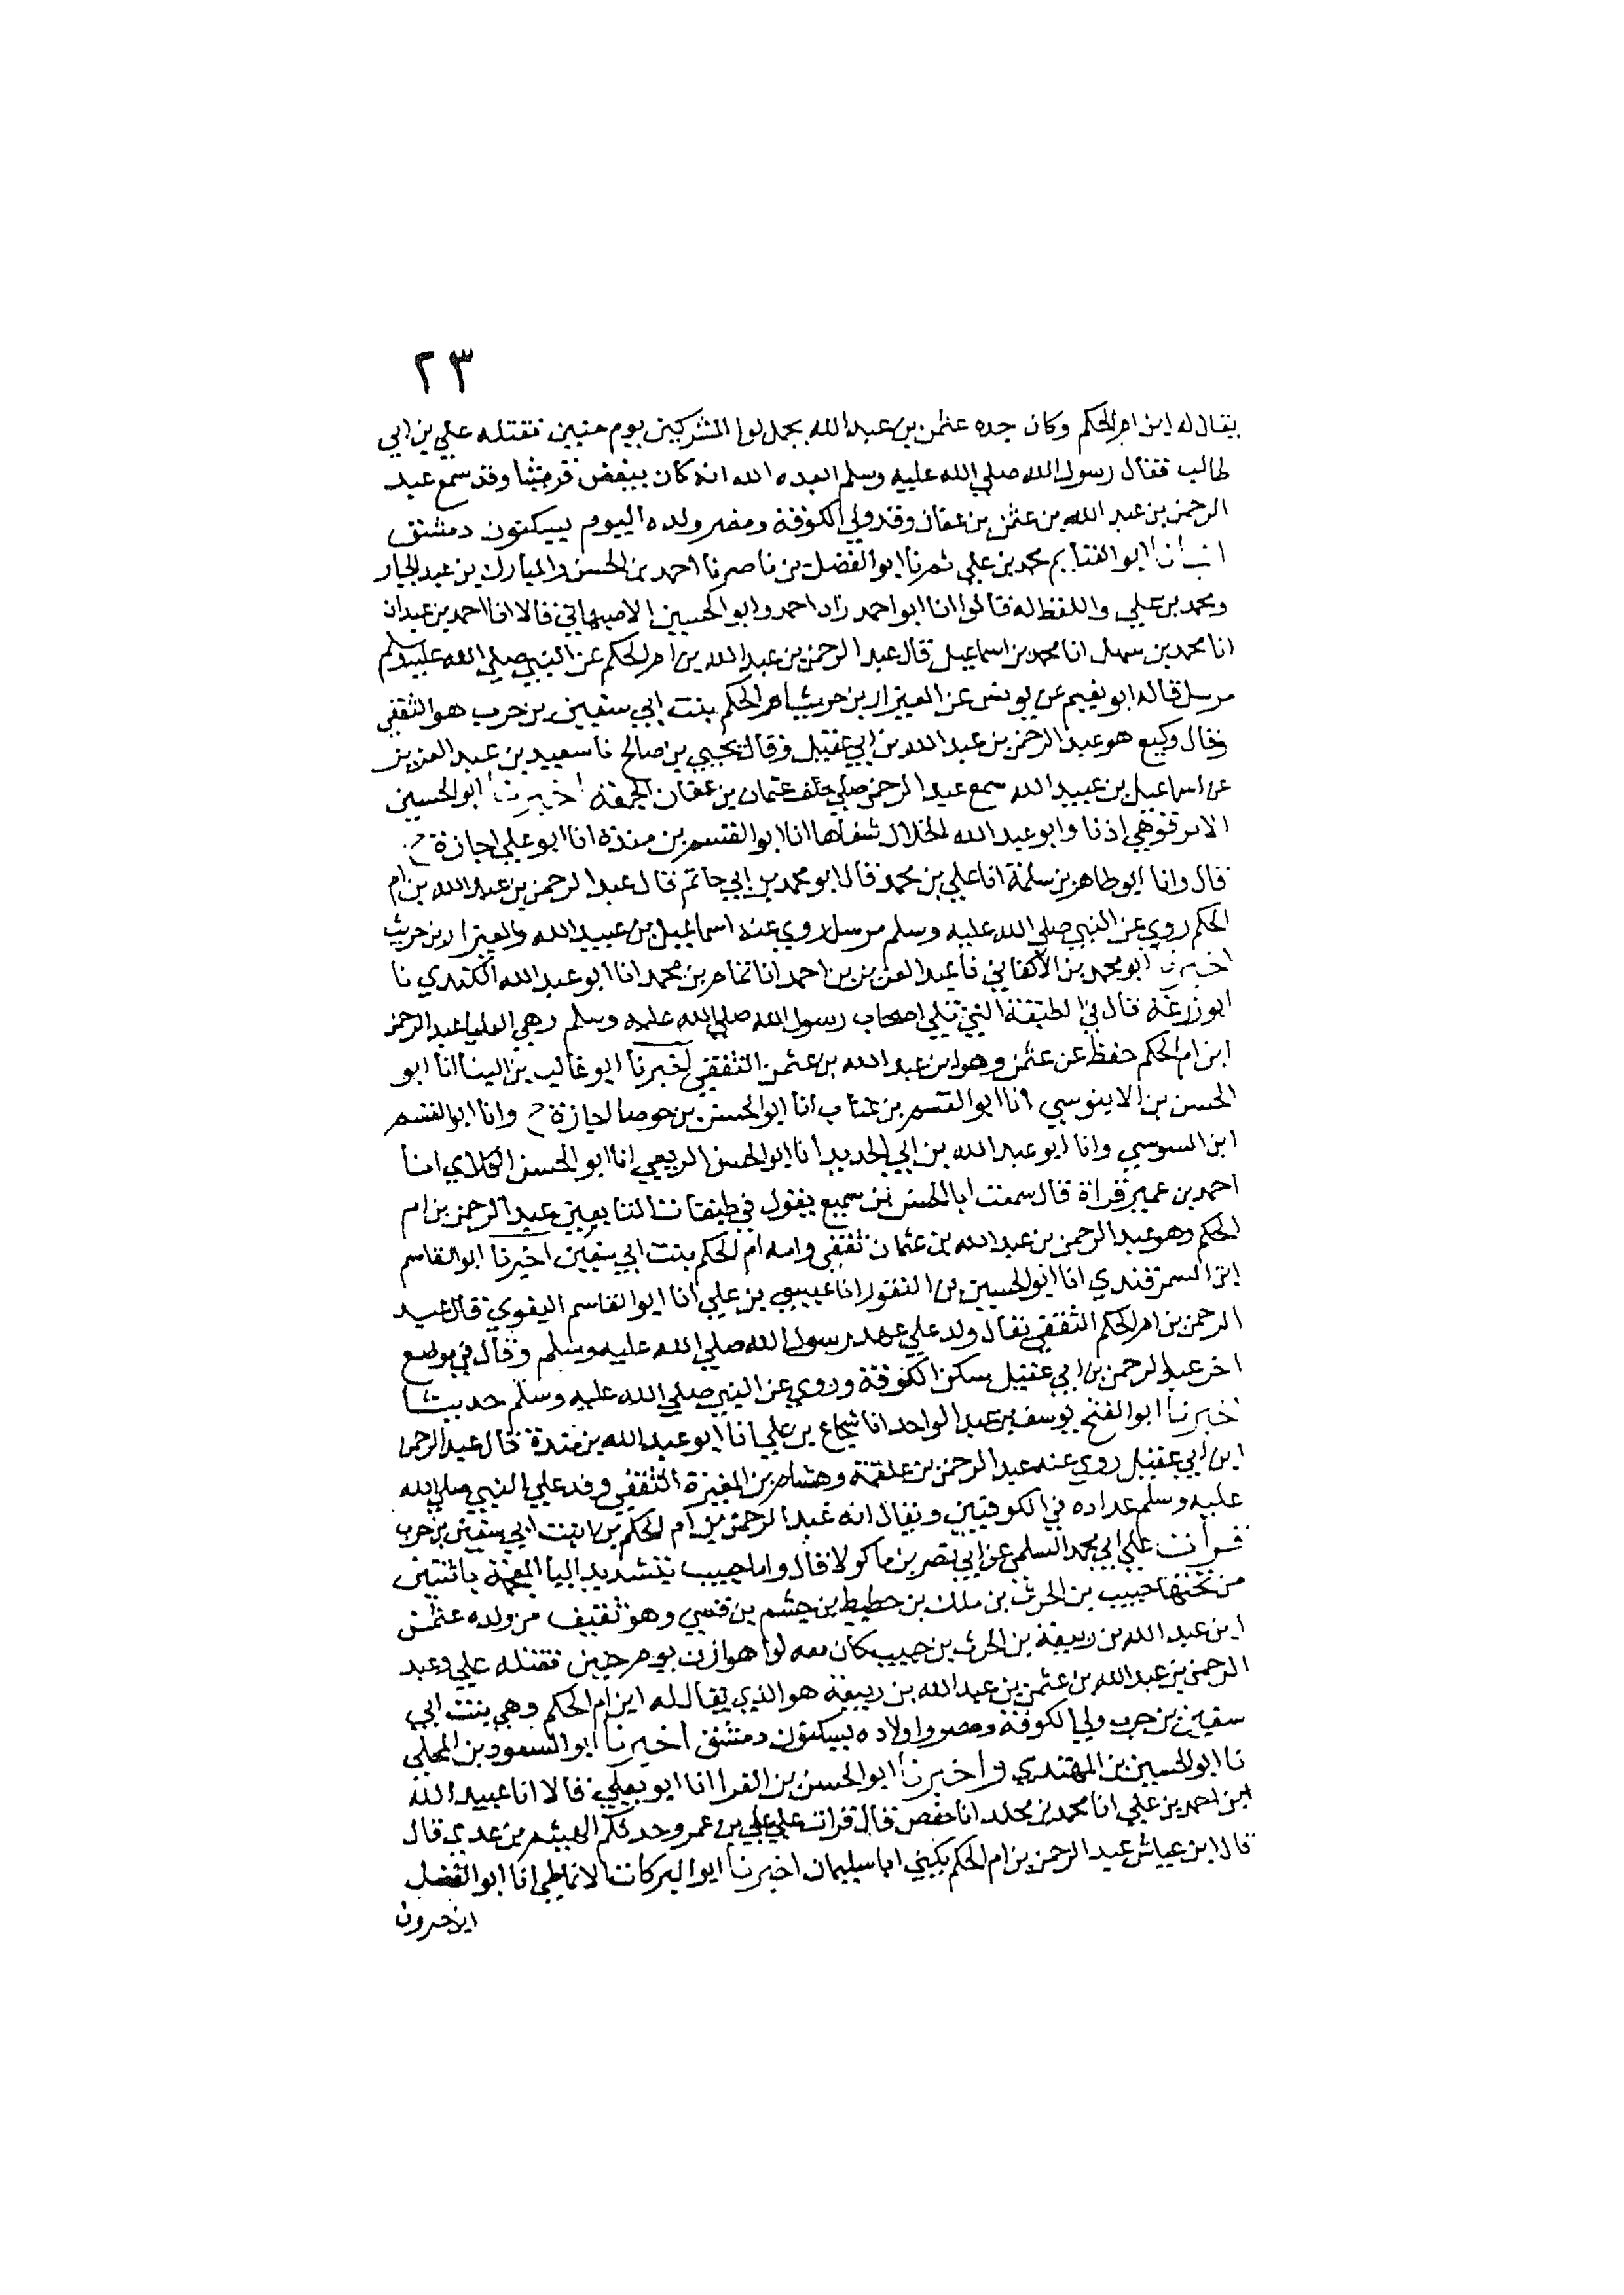 ٢٣
يقال له ابن ام الحكم وكان جده عثمن بن عبد الله يحمل لوا المشركين يوم حنين فقتله علي بن ابي
طالب فقال رسول الله صلي الله عليه وسلم ابعده الله انه كان يبغض قريشا وقد سمع عبد
الرحمن بن عبد الله من عثمن بن عفان وقد ولي الكوفة ومصر وولده اليوم يسكنون دمشق
انبانا ابو الغنايم محمد بن علي ثم نا ابو الفضل بن ناصر نا احمد بن الحسن والمبارك بن عبد الجبار
ومحمد بن علي واللفظ له قالوا انا ابو احمد زاد احمد وابو الحسين الاصبهاني قالا انا احمد بن عبدان
انا محمد بن سهل انا محمد بن اسماعيل قال عبد الرحمن بن عبد الله بن ام الحكم عن النبي صلي الله عليه وسلم
مرسل قاله ابو نعيم عن يونس عن العيزار بن حريث ام الحكم بنت ابي سفين بن حرب هو الثقفي
وقال وكيع هو عبد الرحمن بن عبد الله بن ابي عقيل وقال يحيي بن صالح نا سعيد بن عبد العزيز
عن اسماعيل بن عبيد الله سمع عبد الرحمن صلي خلف عثمان بن عفان الجمعة اخبرنا ابو الحسين
الابرقوهي اذنا وابو عبد الله الخلال شفاها انا ابو القسم بن مندة انا ابو علي اجازة ح
قال وانا ابو طاهر بن سلمة انا علي بن محمد قال ابو محمد بن ابي حاتم قال عبد الرحمن بن عبد الله بن ام
الحكم روي عن النبي صلي الله عليه وسلم مرسل روي عنه اسماعيل بن عبيد الله والعيزار بن حريث
اخبرنا ابو محمد بن الاكفاني نا عبد العزيز بن احمد انا تمام بن محمد انا ابو عبد الله الكندي نا
ابو زرعة قال في الطبقة التي تلي اصحاب رسول الله صلي الله عليه وسلم وهي العليا عبد الرحمن
ابن ام الحكم حفظ عن عثمن وهو ابن عبد الله بن عثمن الثقفي اخبرنا ابو غالب بن البنا انا ابو
الحسن بن الابنوسي انا ابو القسم بن عتاب انا ابو الحسن بن جوصا اجازة ح وانا ابو القسم
ابن السوسي وانا ابو عبد الله بن ابي الحديد انا ابو الحسن الربعي انا ابو الحسن الكلابي انا
احمد بن عمير قراة قال سمعت ابا الحسن بن سميع يقول في طبقات التابعين عبد الرحمن بن ام
الحكم وهو عبد الرحمن بن عبد الله بن عثمان ثقفي وامه ام الحكم بنت ابي سفين اخبرنا ابو القاسم
ابن السمرقندي انا ابو الحسين بن النقور انا عيسي بن علي انا ابو القاسم البغوي قال عبد
الرحمن بن ام الحكم الثقفي يقال ولد علي عهد رسول الله صلي الله عليه وسلم وقال في موضع
اخر عبد الرحمن بن ابي عقيل سكن الكوفة وروي عن النبي صلي الله عليه وسلم حديثا
اخبرنا ابو الفتح يوسف بن عبد الواحد انا شجاع بن علي انا ابو عبد الله بن مندة قال عبد الرحمن
ابن ابي عقيل روي عنه عبد الرحمن بن علقمة وهشام بن المغيرة الثقفي وفد علي النبي صلي الله
عليه وسلم عداده في الكوفيين ويقال انه عبد الرحمن بن ام الحكم بن ابنت ابي سفين بن حرب
قرات علي ابي محمد السلمي عن ابي نصر بن ماكولا قال واما حبيب بتشديد اليا المعجمة باثنتين
من تحتها حبيب بن الحرث بن ملك بن حطيط بن جشم بن قسي وهو ثقيف من ولده عثمن
ابن عبد الله بن ربيعة بن الحرث بن حبيب كان معه لوا هوازن يوم حنين فقتله علي وعبد
الرحمن بن عبد الله بن عثمن بن عبد الله بن ربيعة هو الذي يقال له ابن ام الحكم وهي بنت ابي
سفين بن حرب ولي الكوفة ومصر واولاده يسكنون دمشق اخبرنا ابو السعود بن المجلي
نا ابو الحسين بن المهتدي واخبرنا ابو الحسن بن الفرا انا ابو يعلي قالا انا عبيد الله
ابن احمد بن علي انا محمد بن مخلد انا حفص قال قرات علي علي بن عمرو حدثكم الهيثم بن عدي قال
قال ابن عياش عبد الرحمن بن ام الحكم يكني ابا سليمان اخبرنا ابو البركات الانماطي انا ابو الفضل
ابن خيرون